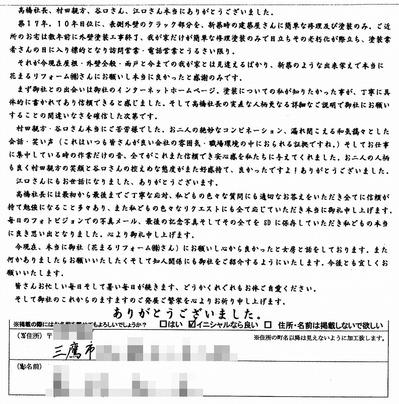 高橋社長、村田親方、谷口さん、江口さん本当にありがとうございました。
築17年。10年目位に、表側外壁のクラック部分を、新築時の建築屋さんに簡単な修理及び塗装のみ。ご近
所のお宅は数年前に外壁塗装工事終了、我が家だけが簡単な修理塗装のみで目立ちその老朽化が際立ち、塗装業
者さんの目に入り標的となり訪問営業・電話営業とうるさい限り。
それが今現在屋根・外壁全般・雨戸と今までの我が家とは見違えるばかり、新築のような出来栄えで本当に
花まるリフォーム㈱さんにお願いし本当に良かったと感謝のみです。
まず御社との出会いは御社のインターネットホームページ。塗装についての私が知りたかった事が、丁寧に具
体的に書かれてあり信頼できると感じました。そして高橋社長の実直な人柄更なる詳細なご説明で御社にお願い
することの間違いなさを確信した次第です。
村田親方・谷口さん本当にご苦労様でした。お二人の絶妙なコンビネーション、漏れ聞こえる和気藹々とした
会話・笑い声（これはいつも皆さんが良い会社の雰囲気・職場環境の中におられる証拠ですね）そしてお仕事
に集中している時の作業だけの音、全てがこれまた信頼でき安心感を私たちに与えてくれました。お二人の人柄
も良く村田親方の笑顔と谷口さんの控えめな態度がまた好感持て、良かったですよ！ありがとうございました。
江口さんにもお世話になりました、ありがとうございます。
高橋社長には最初から最後までご丁寧な応対、私どもの色々な質問にも適切なお答えをいただき全てに信頼が
持て勉強になること多々あり、また私どもの色々なリクエストにも全て応じていただき本当に御礼申し上げます。
毎日のフォトビジョンでの写真メール、最後の記念写真そしてその全てを CD に保存していただき私どもの本当
に良き思い出となりました。心より御礼申し上げます。
今現在、本当に御社（花まるリフォーム㈱さん）にお願いし心から良かったと女房と話をしております。また
何かありましたらお願いいたしたくそして知人関係にも御社をご紹介するようにいたします。今後とも宜しくお
願いいたします。
皆さんお忙しい毎日そして暑い毎日が続きます、どうかくれぐれもお体ご自愛ください。
そして御社のこれからのますますのご発展ご繁栄を心よりお祈り申し上げます。
ありがとうございました。
※掲載の際には よろしいでしょうか？ □はい ☑イニシャルなら良い □ 住所・名前は掲載しないで欲しい
(ご住所) 〒 ※住所の町名以降は見えないように加工致します。
三鷹市
(お名前)